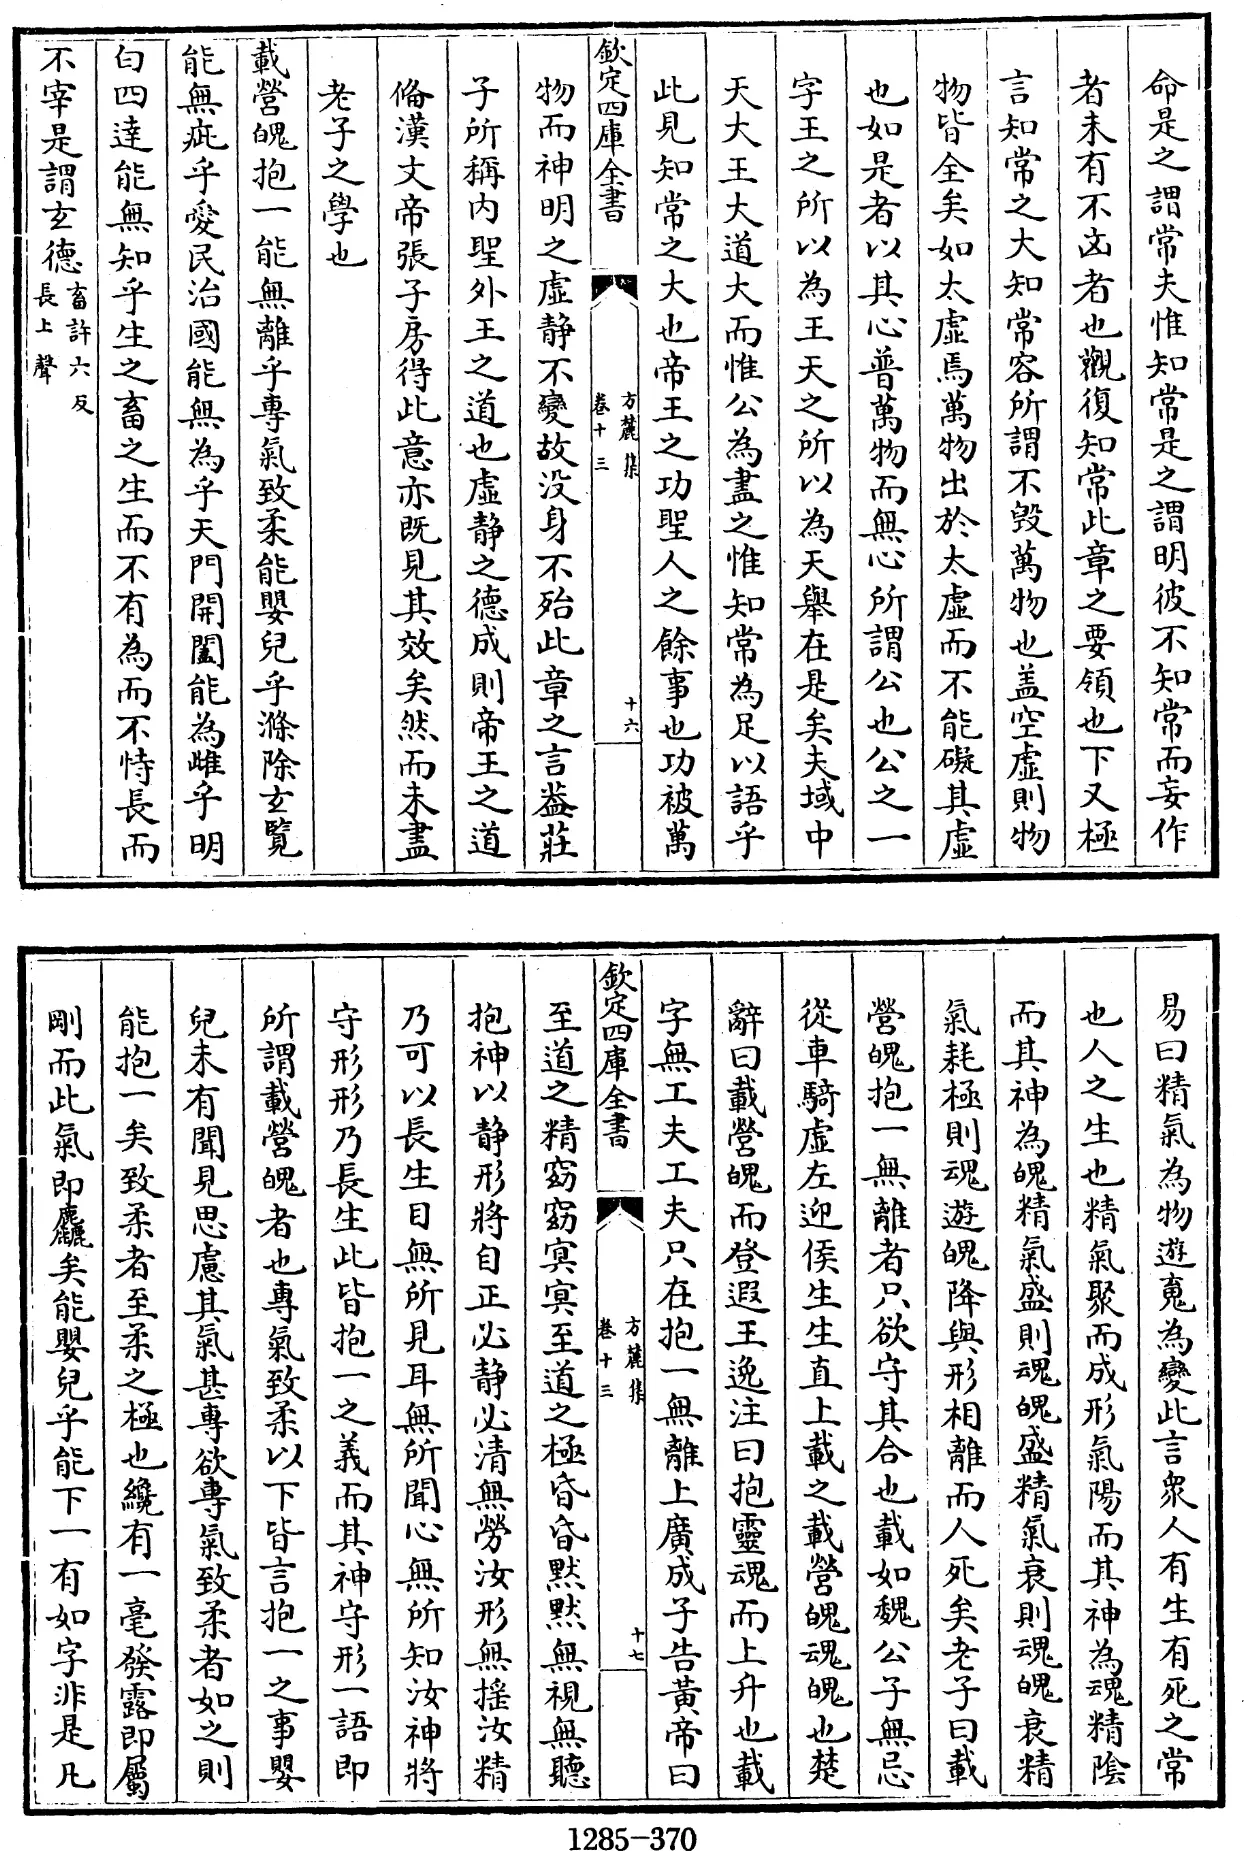 命是之謂常夫惟知常是之謂明彼不知常而妄作
者未有不凶者也觀復知常此章之要領也下又極
言知常之大知常容所謂不毀萬物也盖空虛則物
物皆全矣如太虛焉萬物出於太虛而不能礙其虛
也如是者以其心普萬物而無心所謂公也公之一
字王之所以為王天之所以為天舉在是矣夫域中
天大王大道大而惟公為盡之惟知常為足以語乎
此見知常之大也帝王之功聖人之餘事也功被萬
欽定四庫全書
方麓集
卷十三
十六
物而神明之虛静不變故没身不殆此章之言葢莊
子所稱内聖外王之道也虛静之德成則帝王之道
脩漢文帝張子房得此意亦既見其效矣然而未盡
老子之學也
載營魄抱一能無離乎專氣致柔能嬰兒乎滌除玄覽
能無疵乎愛民治國能無為乎天門開闔能為雌乎明
白四達能無知乎生之畜之生而不有為而不恃長而
不宰是謂玄德畜許六反
長上聲
易曰精氣為物遊䰟為變此言衆人有生有死之常
也人之生也精氣聚而成形氣陽而其神為魂精陰
而其神為魄精氣盛則魂魄盛精氣衰則魂魄衰精
氣耗極則魂遊魄降與形相離而人死矣老子曰載
營魄抱一無離者只欲守其合也載如魏公子無忌
從車騎虛左迎侯生生直上載之載營魄魂魄也楚
辭曰載營魄而登遐王逸注曰抱靈魂而上升也載
字無工夫工夫只在抱一無離上廣成子告黃帝曰
欽定四庫全書
方麓集
卷十三
十七
至道之精窈窈冥冥至道之極昏昏默默無視無聽
抱神以静形將自正必静必清無勞汝形無揺汝精
乃可以長生目無所見耳無所聞心無所知汝神將
守形形乃長生此皆抱一之義而其神守形一語即
所謂載營魄者也專氣致柔以下皆言抱一之事嬰
兒未有聞見思慮其氣甚專欲專氣致柔者如之則
能抱一矣致柔者至柔之極也纔有一毫發露即屬
剛而此氣即麤矣能嬰兒乎能下一有如字非是凡
1285-370